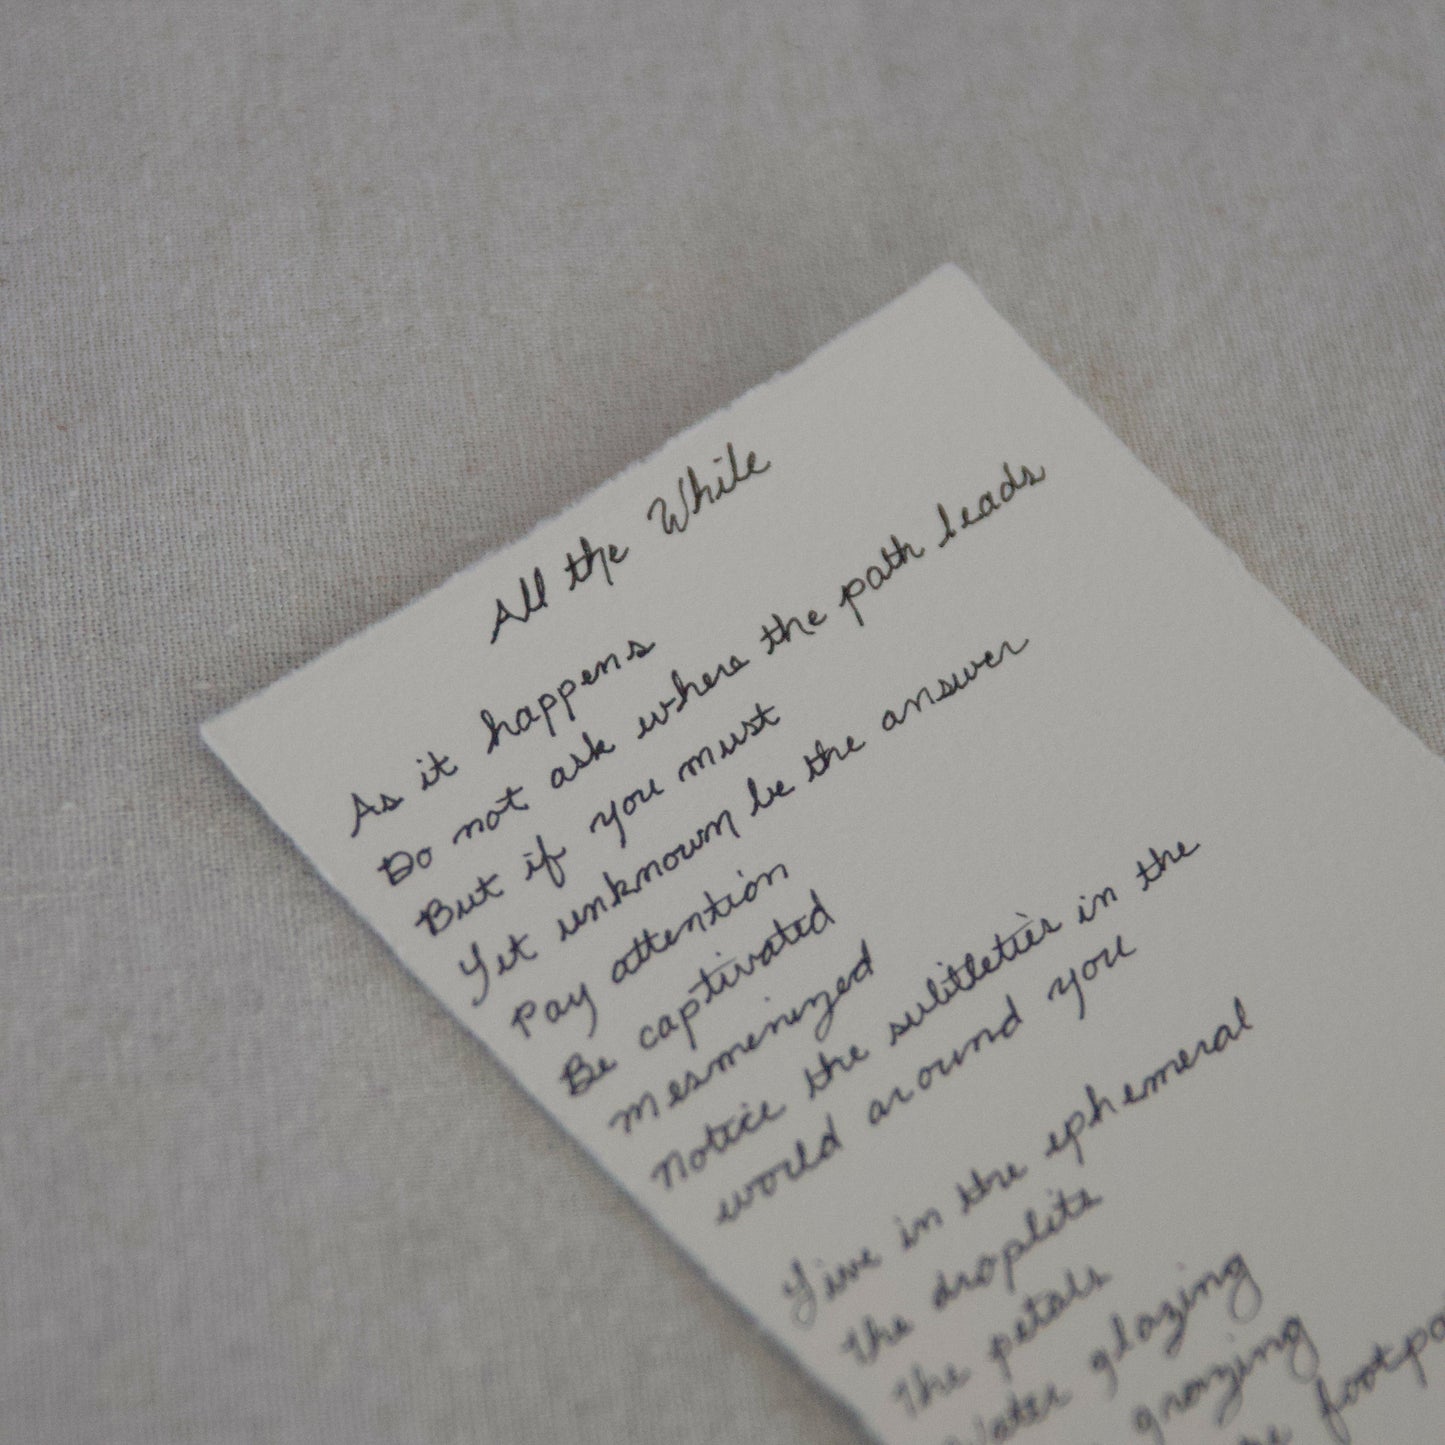 All the While
As it happens
Do not ask where the path leads
But if you must
Yet unknown be the answer
Pay attention
Be captivated
Mesmerized
Notice the sublteties in the
world around you
Live in the ephemeral
The droplets
The petals
Water glazing
grazing
footpa